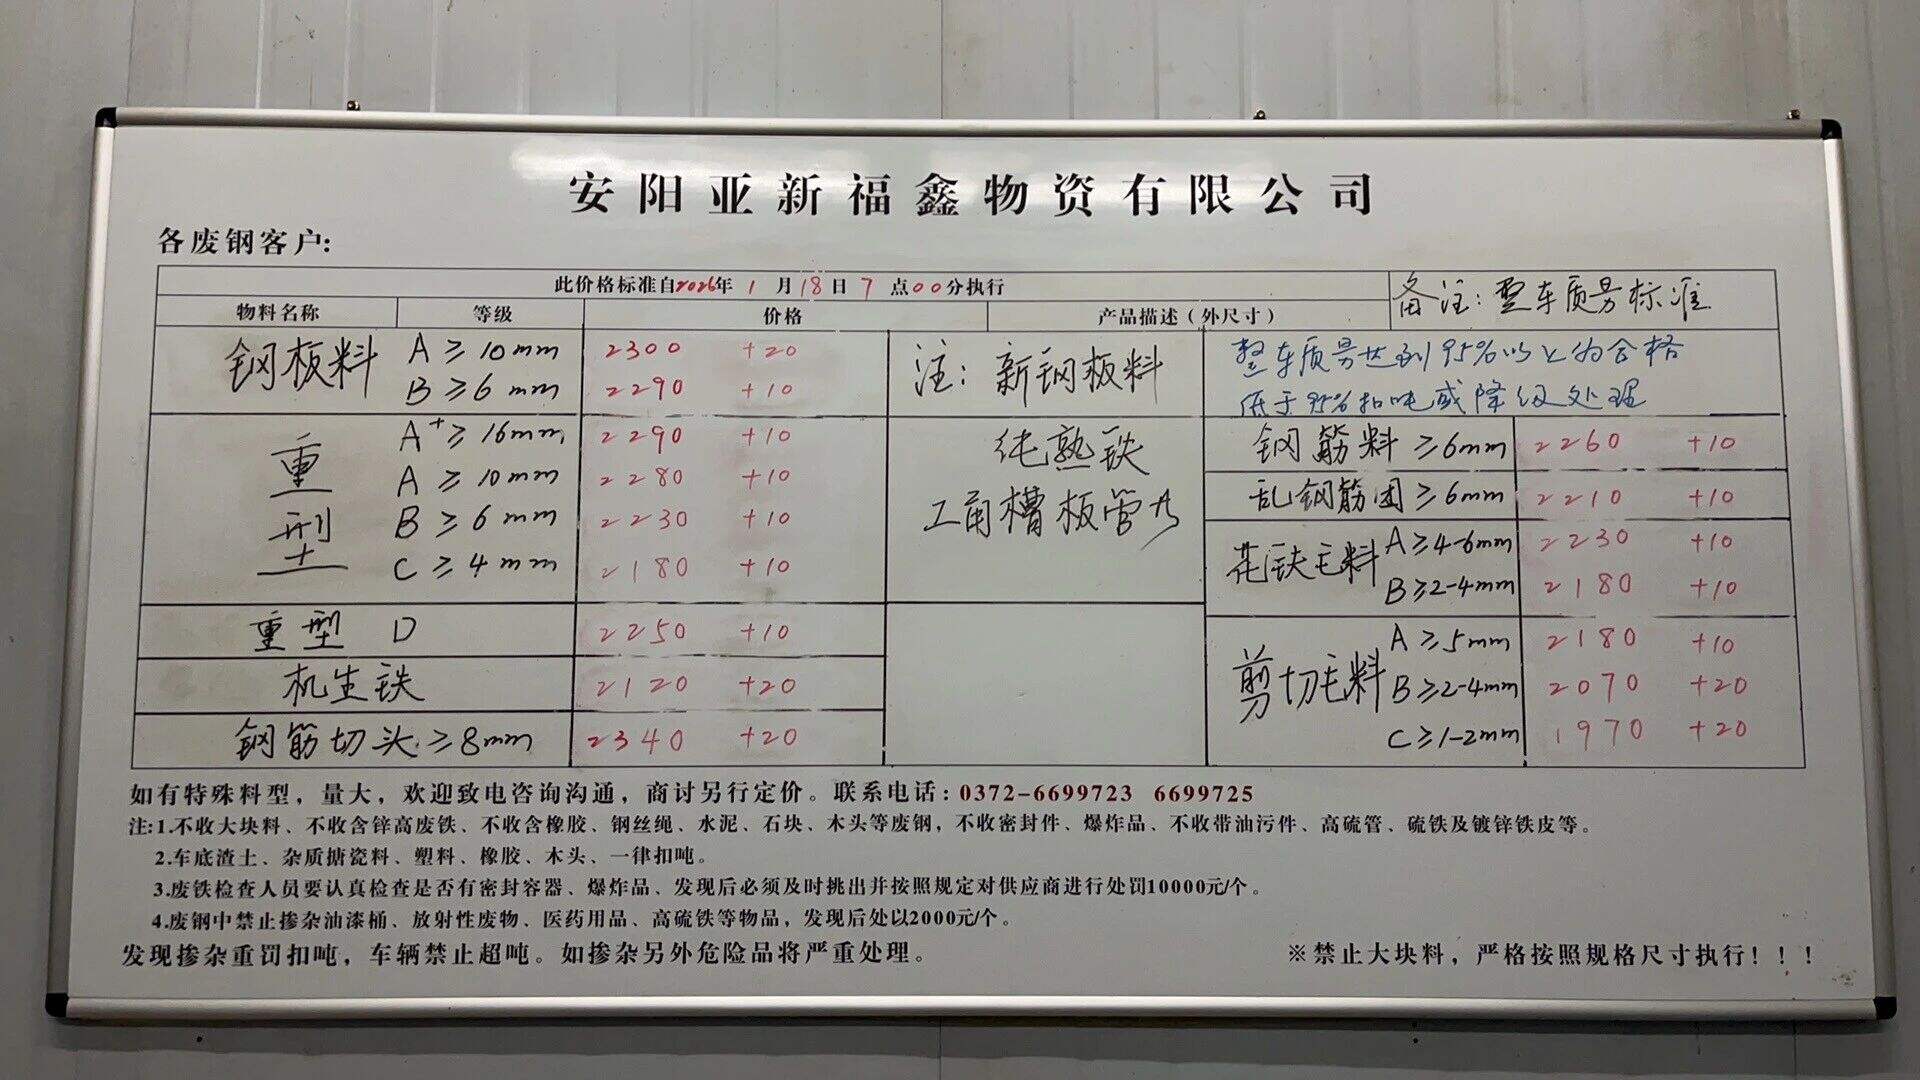 安阳亚新福鑫物资有限公司
各废钢客户:
此价格标准自2026年 1 月 18 日 7 点 00 分执行
备注：整车质量标准
物料名称 等级 价格 产品描述（外尺寸）
钢板料 A ≥ 10mm 2300 +20
B ≥ 6 mm 2290 +10
注：新钢板料
整车质量达到95%以上为合格
低于95%扣吨或降级处理
重型 A⁺ ≥ 16mm 2290 +10
A ≥ 10mm 2280 +10
B ≥ 6 mm 2230 +10
C ≥ 4 mm 2180 +10
纯熟铁
工角槽板管
重型 D 2250 +10
机生铁 2120 +20
钢筋切头 ≥8mm 2340 +20
钢筋料 ≥6mm 2260 +10
乱钢筋团 ≥6mm 2210 +10
花铁毛料 A≥4-6mm 2230 +10
B≥2-4mm 2180 +10
剪切毛料 A ≥5mm 2180 +10
B≥2-4mm 2070 +20
C≥1-2mm 1970 +20
如有特殊料型，量大，欢迎致电咨询沟通，商讨另行定价。联系电话：0372-6699723 6699725
注:1.不收大块料、不收含锌高废铁、不收含橡胶、钢丝绳、水泥、石块、木头等废钢，不收密封件、爆炸品、不收带油污件、高硫管、硫铁及镀锌铁皮等。
2.车底渣土、杂质搪瓷料、塑料、橡胶、木头、一律扣吨。
3.废铁检查人员要认真检查是否有密封容器、爆炸品、发现后必须及时挑出并按照规定对供应商进行处罚10000元/个。
4.废钢中禁止掺杂油漆桶、放射性废物、医药用品、高硫铁等物品，发现后处以2000元/个。
发现掺杂重罚扣吨，车辆禁止超吨。如掺杂另外危险品将严重处理。
※禁止大块料，严格按照规格尺寸执行！！！